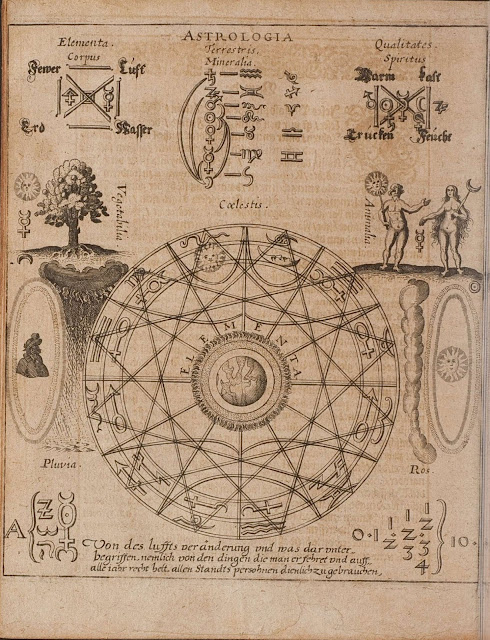 ASTROLOGIA
Elementa.
Corpus
Terrestris.
Mineralia.
Qualitates.
Spiritus
Fewer Lufft
Warm Kalt
Erd Wasser
Trucken Feücht
Vegetabilia
Cœlestis.
Animalia.
ELEMENTA
Pluvia.
Ros.
A
0.1 1.2. 1.2.3 1.2.3.4 10.
Von des luffts veränderung vnd was darunter
begriffen, nemlich von den dingen die man erfehret vnd auff
alle iahr recht helt, allen Standts persohnen dienlich zu gebrauchen.